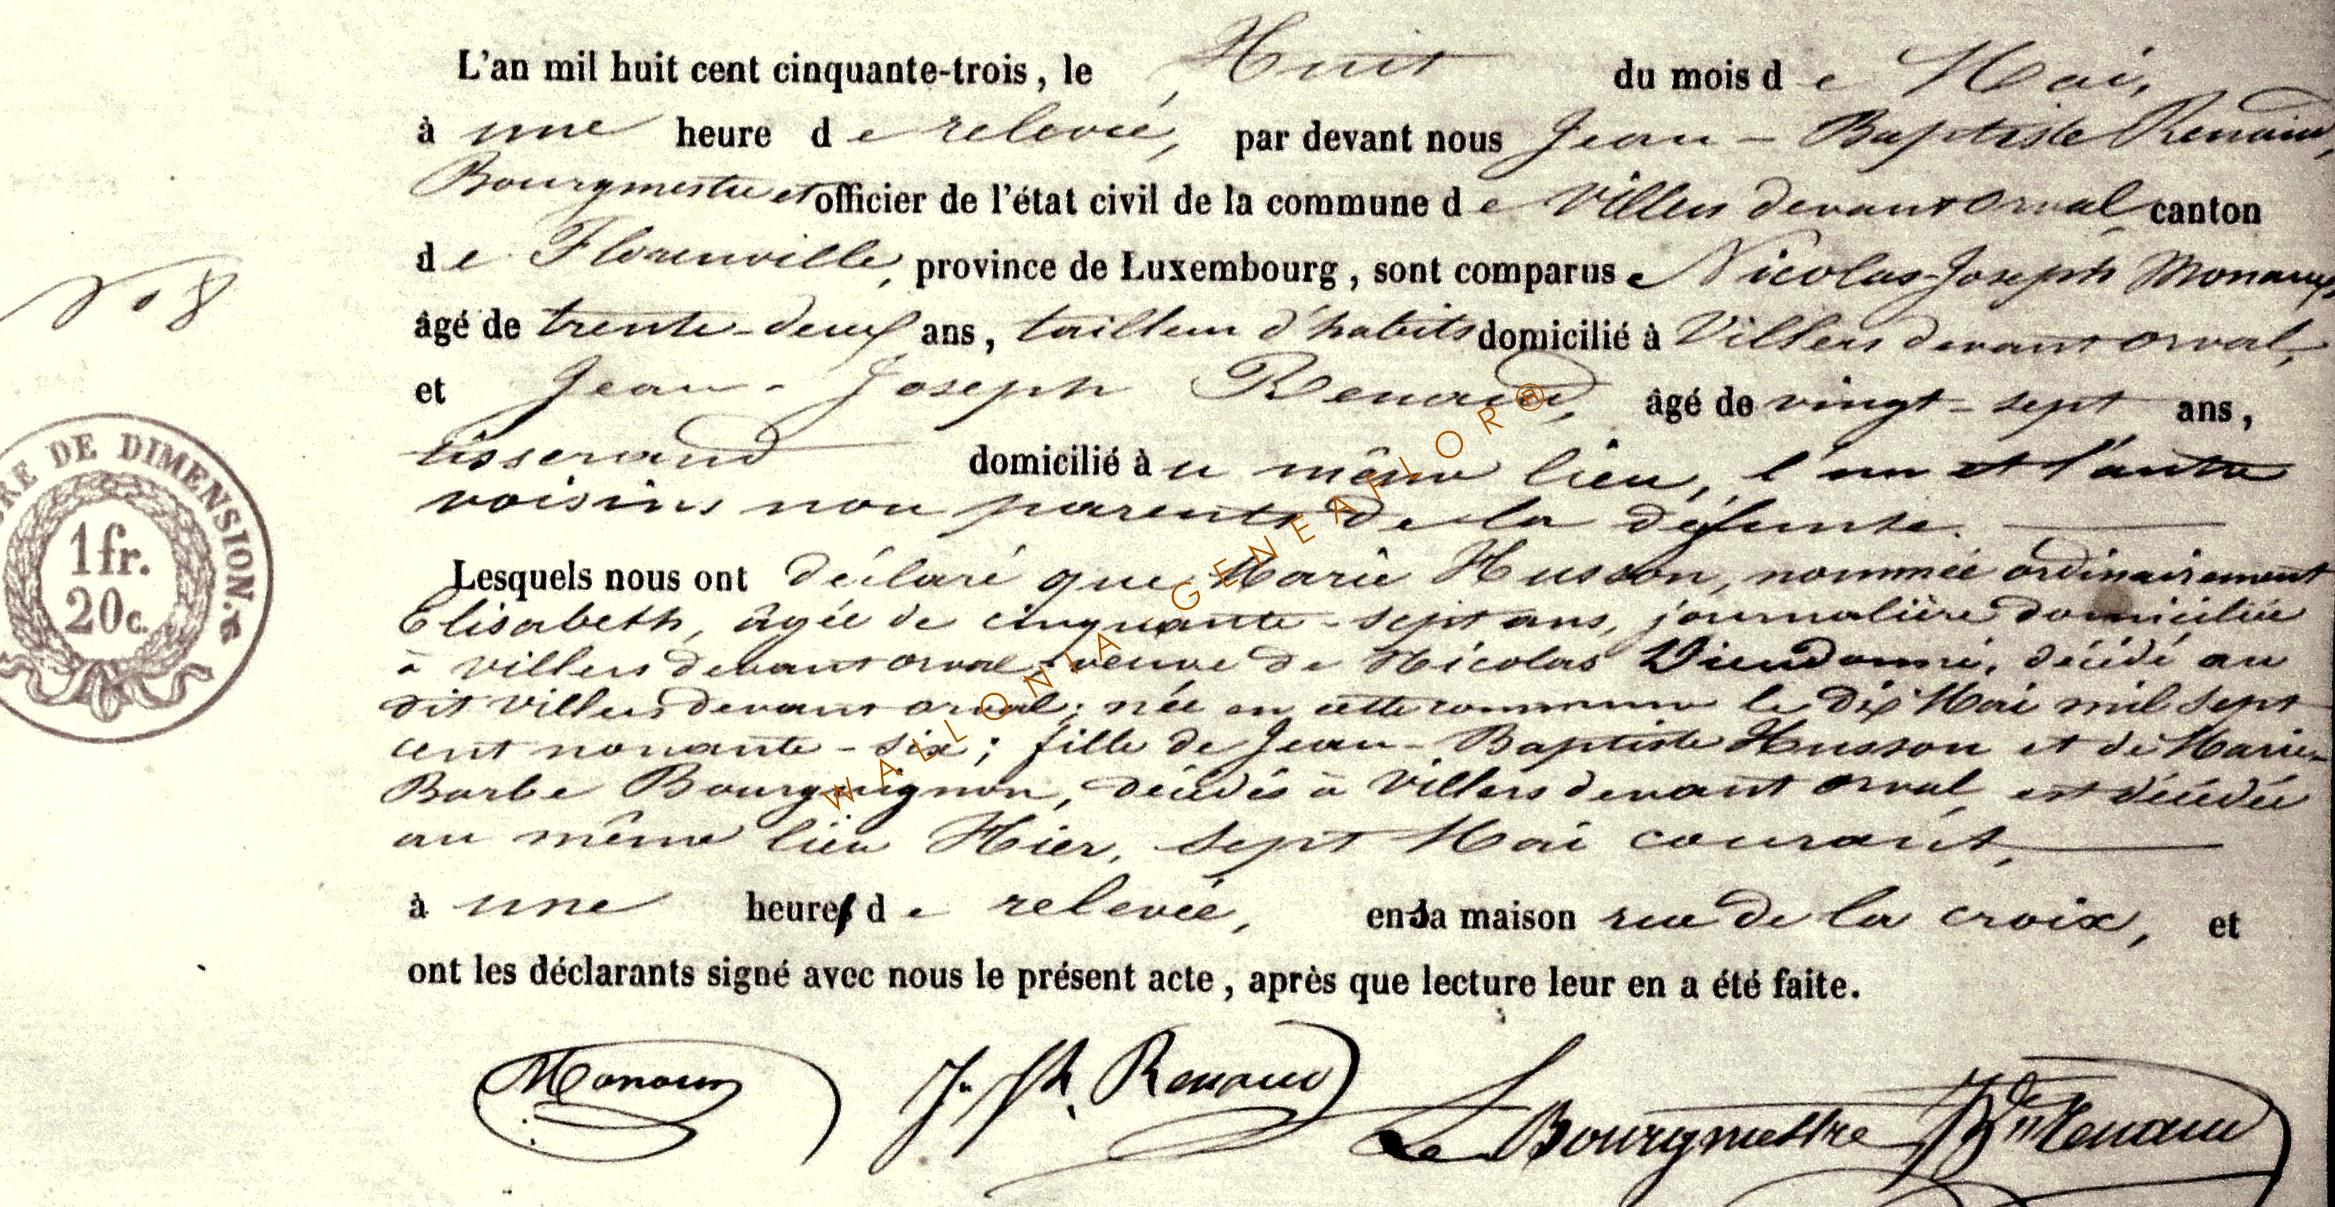 L'an mil huit cent cinquante-trois, le Huit du mois de Mai,
à une heure de relevée, par devant nous Jean-Baptiste Renaud,
Bourgmestre et officier de l'état civil de la commune de Villers devant Orval canton
de Florenville, province de Luxembourg, sont comparus Nicolas-Joseph
N° 8
âgé de trente-deux ans, tailleur d'habits domicilié à Villers devant orval,
et Jean-Joseph Renaud, âgé de vingt-sept ans,
tisserand domicilié àu même lieu, l'un et l'autre
voisins non parents de la défunte.
TIMBRE DE DIMENSION.
1 fr.
20 c.
Lesquels nous ont déclaré que Marie Husson, nommée ordinairement
Elisabeth, âgée de cinquante-sept ans, journalière domiciliée
à villers devant orval, veuve de Nicolas Dieudonné, décédé au
dit villers devant orval; née en cette commune le dix Mai mil sept
cent nonante-six; fille de Jean-Baptiste Husson et de Marie-
Barbe Bourguignon, décédés à Villers devant orval, est décédée
au même lieu Hier, sept Mai courant,
à une heure de relevée, en sa maison rue de la croix, et
ont les déclarants signé avec nous le présent acte, après que lecture leur en a été faite.
J. Jh. Renaud
Le Bourgmestre JBte Renaud
WALLONIA GENEAFLOR®